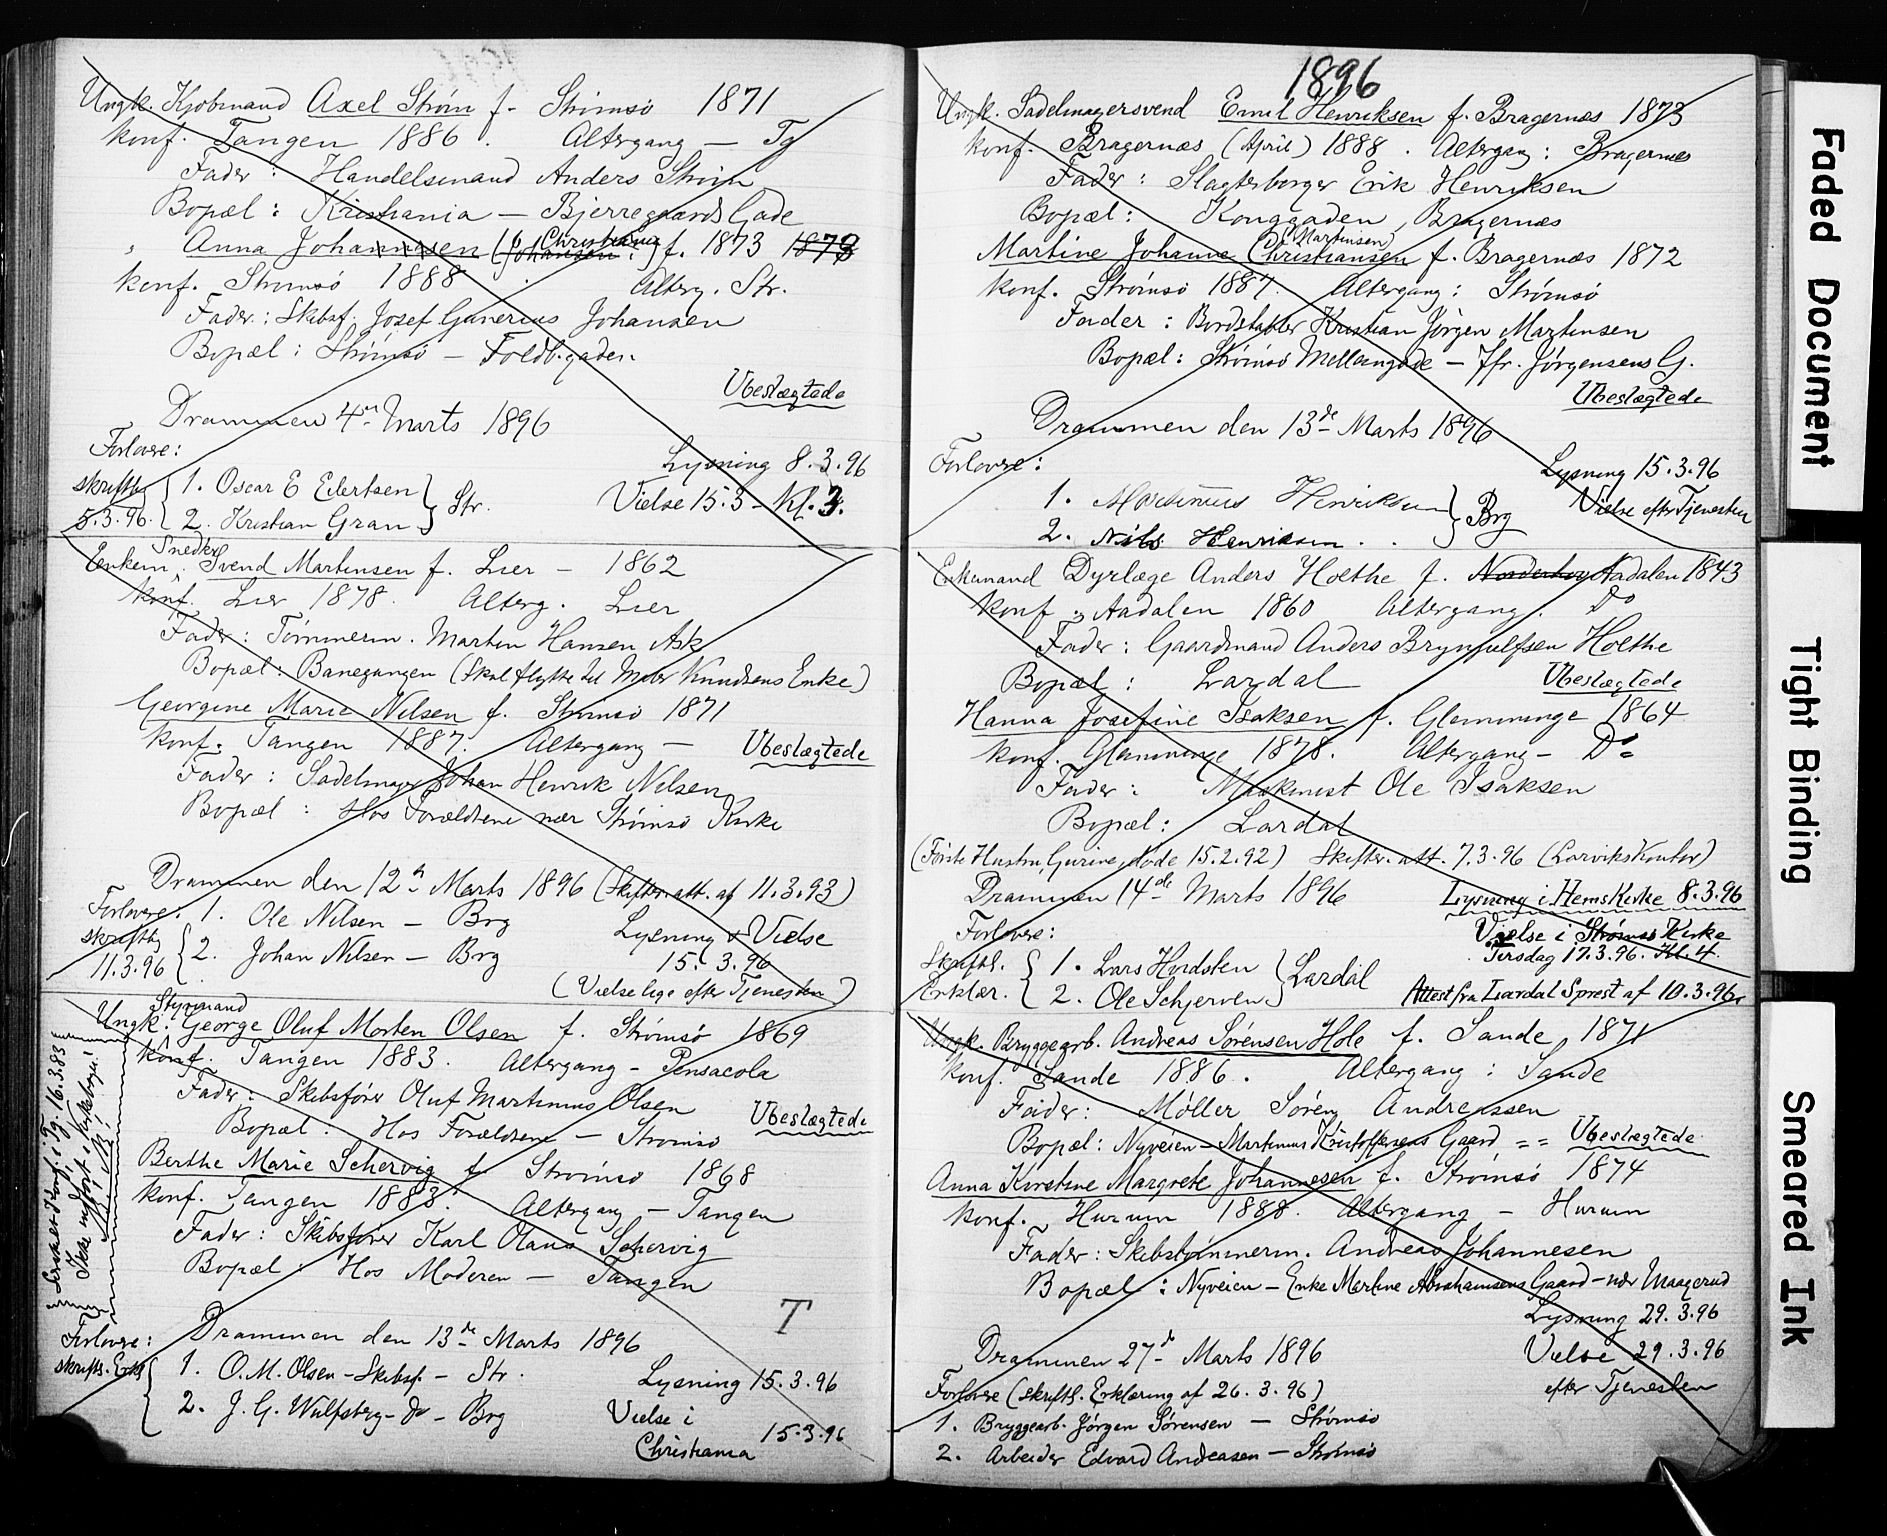 Ungk. Kjøbmand Axel Strøm f. Strømsö 1871
konf. Tangen 1886. Altergang — Tg
Fader: Handelsmand Anders Strøm
Bopæl: Kristiania — Bjerregaards Gade
Anna Johannesen (Johansen Christiania) f. 1873 1873
konf. Strømsö 1888. Alterg. Str.
Fader: Skibsf. Josef Gunerius Johansen
Bopæl: Strømsö — Foldb.gaden
Ubeslægtede
Drammen 4de Marts 1896
Forlovere:
Lysning 8.3.96
skriftlig 1. Oscar E Eilertsen Str.
Vielse 15.3 — Kl. 3.
5.3.96. 2. Kristian Gran
Snedker
Enkem. Svend Martinsen f. Lier — 1862
konf. Lier 1878. Alterg. Lier
Fader: Tømmerm. Martin Hansen Ask
Bopæl: Banegangen (skal flytte til Knudsens Enke)
Georgine Marie Nilsen f. Strømsö 1871
konf. Tangen 1887. Altergang — Ubeslægtede
Fader: Sadelmager Johan Henrik Nilsen
Bopæl: Hos Forældrene nær Strømsö Kirke
Drammen den 12te Marts 1896 (Skifteratt. af 11.3.93)
Forlovere: 1. Ole Nilsen — Brg
Lysning & Vielse
skriftlig 2. Johan Nilsen — Brg
15.3.96
11.3.96
(Vielse lige efter Tjenesten)
Styrmand
Ungk. George Oluf Morten Olsen f. Strømsö 1869
konf. Tangen 1883. Altergang — Pensacola
Fader: Skibsfører Oluf Martinius Olsen
Bopæl: Hos Forældrene — Strømsö
Ubeslægtede
Berthe Marie Schervig f. Strømsö 1868
konf. Tangen 1883. Altergang — Tangen
Fader: Skibsfører Karl Olaus Schervig
Bopæl: Hos Moderen — Tangen
T
Drammen den 13de Marts 1896
Forlovere:
skriftl. Erkl. 1. O. M. Olsen — Skibsf. — Str.
Lysning 15.3.96
2. J. G. Wulfsberg — do — Brg
Vielse i Christiania 15.3.96
konf. i Tg. 16.3.83
Ikke indført i Kirkebogen!
1896
Ungk. Sadelmagersvend Emil Henriksen f. Bragernæs 1873
konf. Bragernæs (April) 1888. Altergang: Bragernæs
Fader: Slagterborger Erik Henriksen
Bopæl: Konggaden, Bragernæs
Martine Johanne Christiansen (Martinsen) f. Bragernæs 1872
konf. Strømsö 1887. Altergang: Strømsö
Fader: Bordstabler Kristian Jörgen Martinsen
Bopæl: Strømsö Mellemgade — Jfr. Jörgensens G.
Ubeslægtede
Drammen den 13de Marts 1896
Forlovere:
Lysning 15.3.96
1. Martinius Henriksen Brg
Vielse efter Tjenesten
2. Nils Henriksen
Enkemand Dyrlæge Anders Holthe f. Norderhov Aadalen 1843
konf. Aadalen 1860 Altergang. Do
Fader: Gaardmand Anders Brynjulfsen Holthe
Bopæl: Lardal
Ubeslægtede
Hanna Josefine Isaksen f. Glemminge 1864
konf. Glemminge 1878. Altergang — Do
Fader: Maskinist Ole Isaksen
Bopæl: Lardal
(Første Hustru, Gurine, døde 15.2.92) Skifter. att. 7.3.96 (Larviks Kontor)
Drammen 14de Marts 1896
Lysning i Hems Kirke 8.3.96
Forlovere:
Vielse i Strømsö Kirke
Tirsdag 17.3.96. Kl. 4
Skriftl. 1. Lars Hordsten Lardal
Erklær. 2. Ole Schjerven
Attest fra Lardal Sprest af 10.3.96
Ungk. Bryggearb. Andreas Sørensen Hole f. Sande 1871
konf. Sande 1886. Altergang: Sande
Fader: Møller Søren Andreassen
Bopæl: Nyveien — Martinius Kristoffersens Gaard
Ubeslægtede
Anna Kirstine Margrete Johannesen f. Strømsö 1874
konf. Hurum 1888. Altergang — Hurum
Fader: Skibstømmerm. Andreas Johannesen
Bopæl: Nyveien — Enke Martine Abrahamsens Gaard — nær Maagerud
Lysning 29.3.96
Drammen 27de Marts 1896
Vielse 29.3.96
Forlovere (skriftl. Erklæring af 26.3.96)
efter Tjenesten
1. Bryggearb. Jörgen Sörensen — Strømsö
2. Arbeider Edvard Andreasen — Strømsö
Faded Document
Tight Binding
Smeared Ink